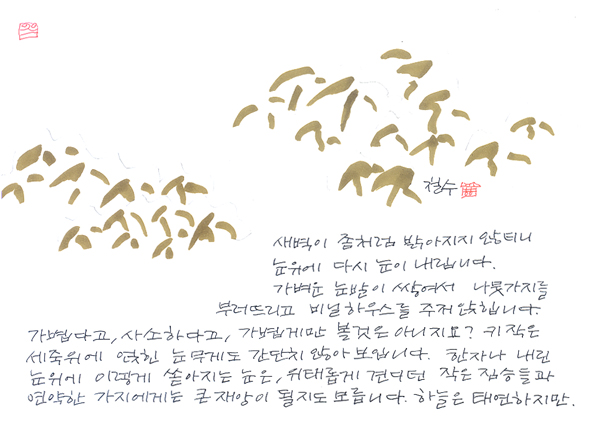 철수
새벽이 좀처럼 밝아지지 않더니
눈위에 다시 눈이 내립니다.
가벼운 눈발이 쌓여서 나뭇가지를
부러뜨리고 비닐하우스를 주저앉힙니다.
가볍다고, 사소하다고, 가볍게만 볼것은 아니지요? 키작은
세죽위에 얹힌 눈무게도 간단치 않아 보입니다. 한자나 내린
눈위에 이렇게 쏟아지는 눈은, 위태롭게 견디던 작은 짐승들과
연약한 가지에게는 큰재앙이 될지도 모릅니다. 하늘은 태연하지만.